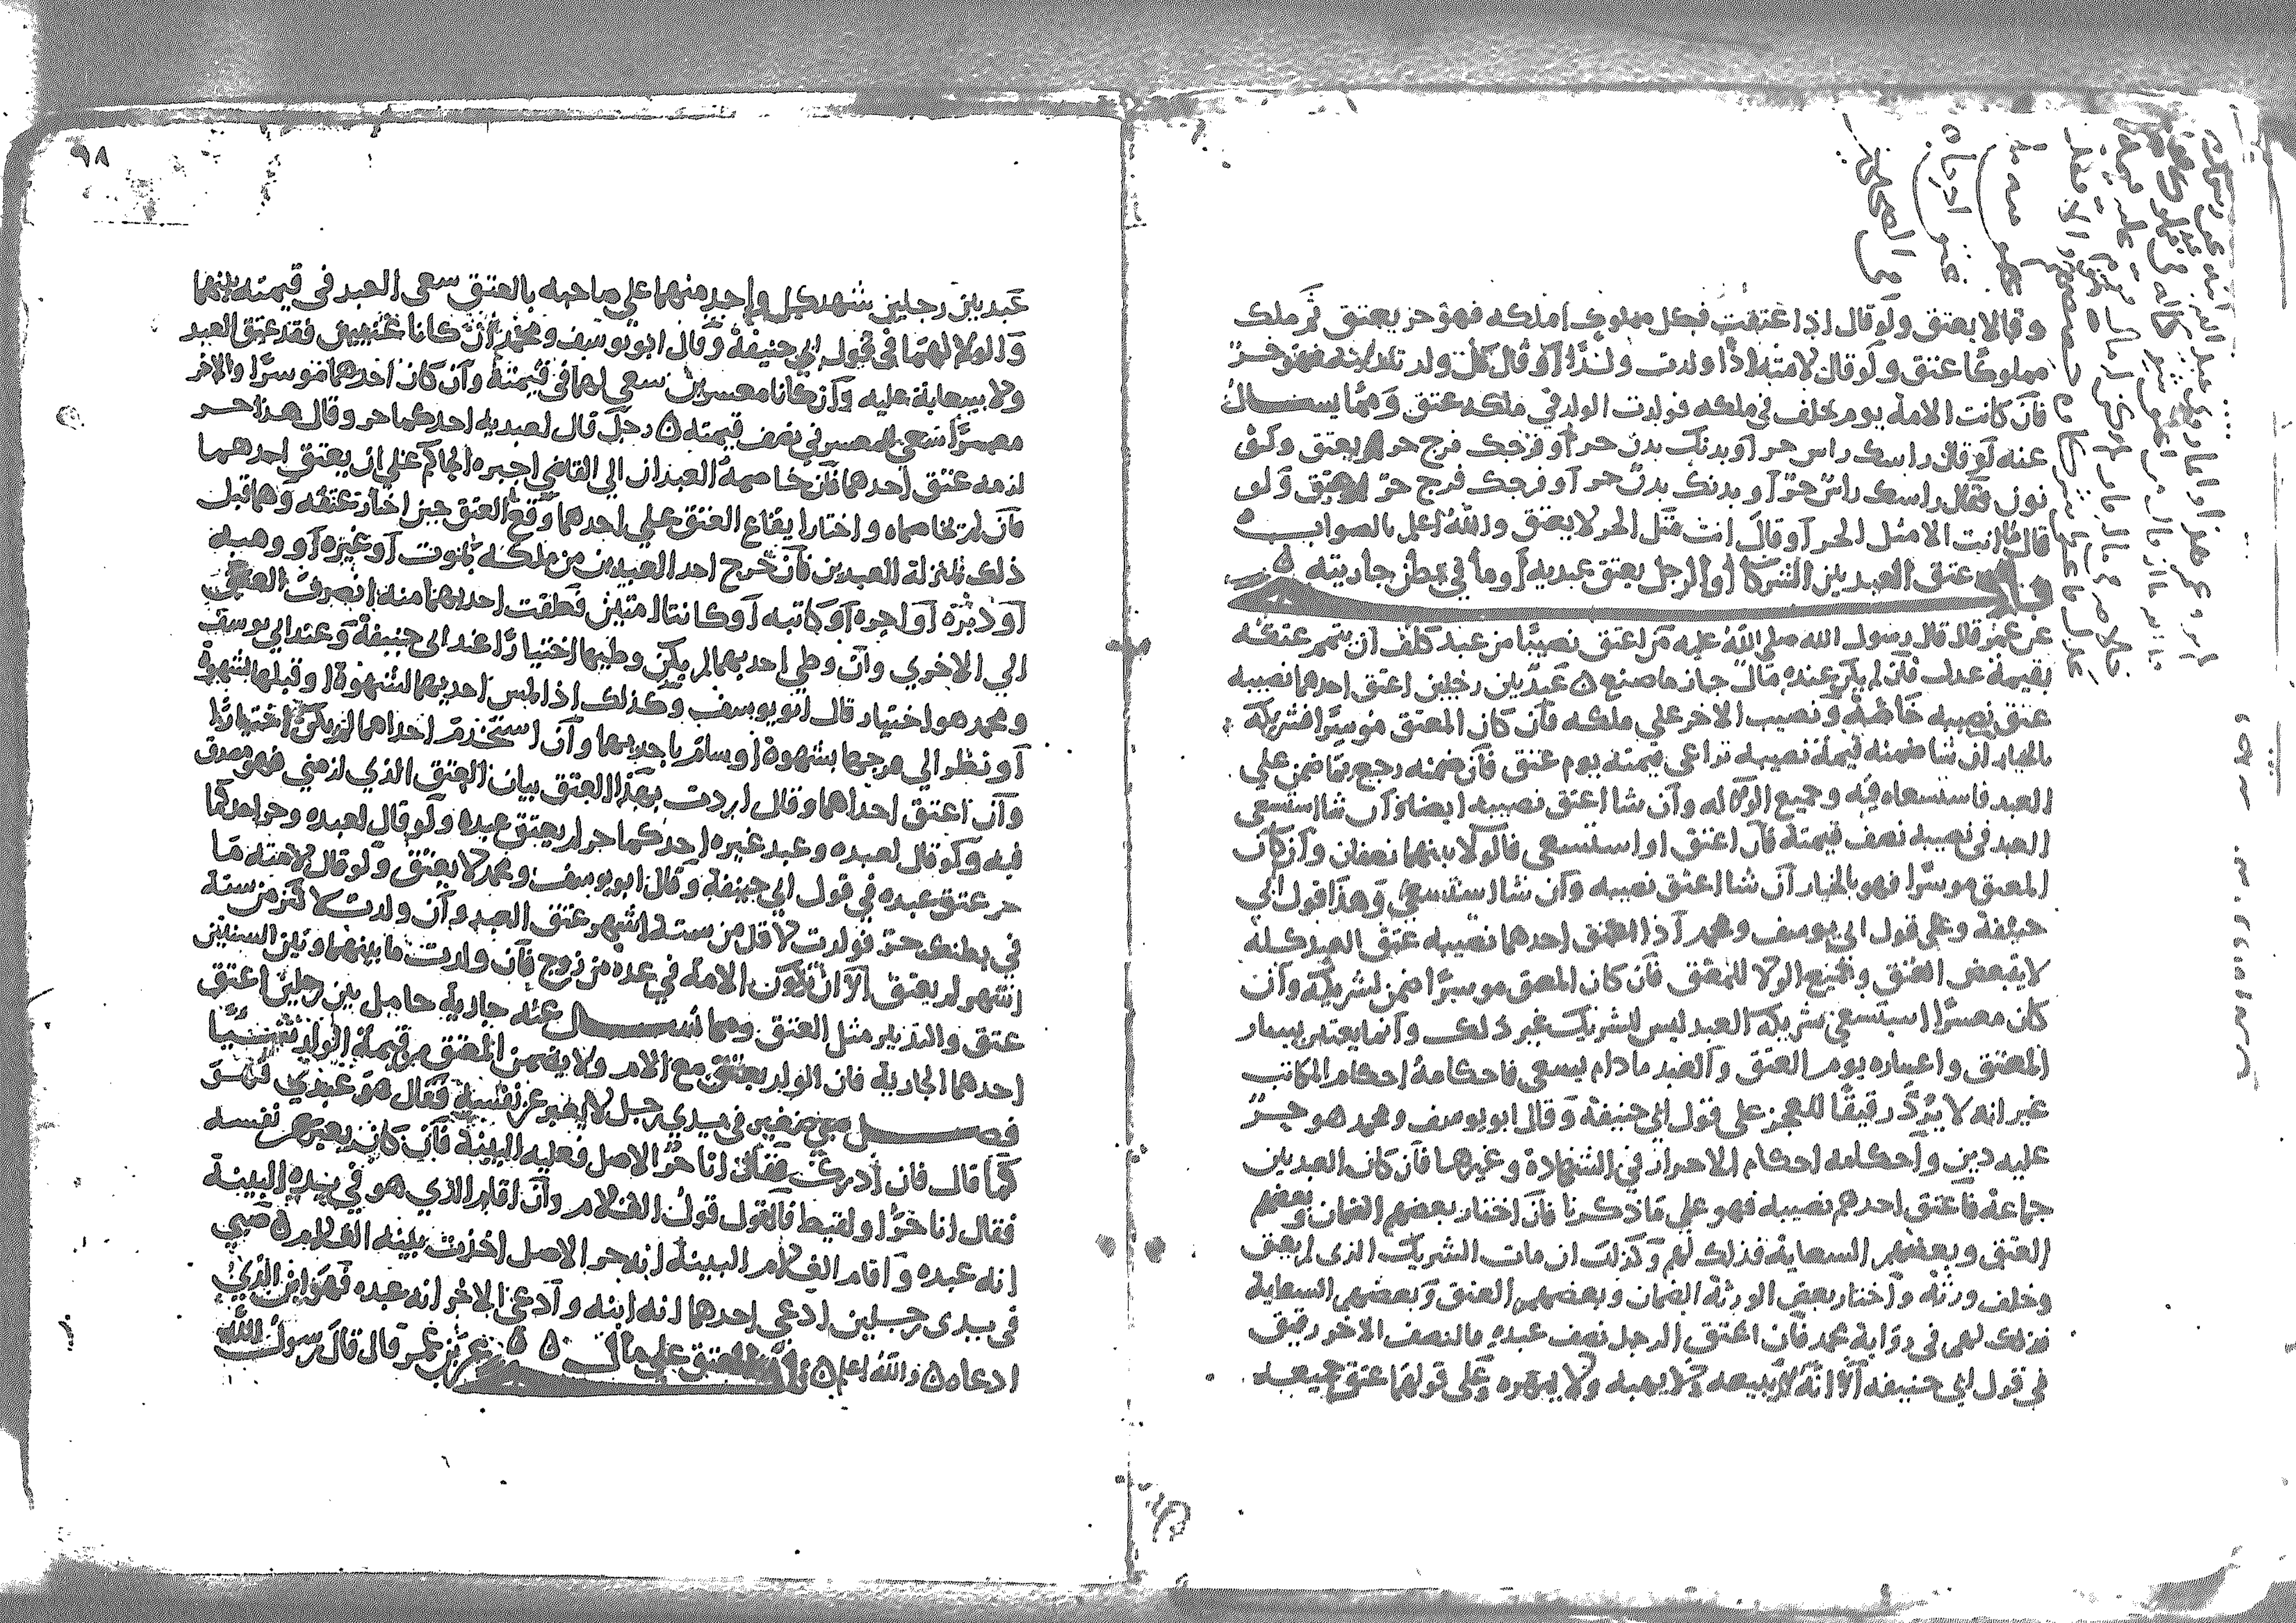 وقالا يعتق ولو قال اذا اعتقت فكل مملوك املكه فهو حر يعتق ثم ملك
مملوكا عتق ولو قال لامته اذا ولدت ولدا او قال كل ولد تلدينه فهو حر
فان كانت الامة يوم حلف في ملكه فولدت الولد في ملكه عتق ومما يسال
عنه لو قال راسك راس حر او بدنك بدن حر او فرجك فرج حر لم يعتق ولو
نون فقال راسك راس حر او بدنك بدن حر او فرجك فرج حر عتق ولو
قال ما انت الا مثل الحر او قال انت مثل الحر لا يعتق والله اعلم بالصواب
باب عتق العبد بين الشركا او الرجل يعتق عبديه او ما في بطن جاريته
عن عمر قال قال رسول الله صلى الله عليه من اعتق نصيبا من عبد كلف ان يتمم عتقه
بقيمة عدل فان لم يكن عنده مال جاز ما صنع عبد بين رجلين اعتق احدهما نصيبه
عتق نصيبه خاصة ونصيب الاخر على ملكه فان كان المعتق موسرا فشريكه
بالخيار ان شا ضمنه قيمة نصيبه تراعى قيمته يوم عتق فان ضمنه رجع بما ضمن على
العبد فاستسعاه فيه وجميع الولا له وان شا اعتق نصيبه ايضا وان شا استسعى
العبد في نصيبه نصف قيمته فان اعتق او استسعى فالولا بينهما نصفان وان كان
المعتق موسرا فهو بالخيار ان شا اعتق نصيبه وان شا استسعى وهذا قول ابي
حنيفة وعلى قول ابي يوسف ومحمد اذا اعتق احدهما نصيبه عتق العبد كله
لا يتبعض العتق وجميع الولا للمعتق فان كان المعتق موسرا ضمن لشريكه وان
كان معسرا استسعى شريكه العبد ليس للشريك غير ذلك وانما يعتبر يسار
المعتق واعساره يوم العتق والعبد ما دام يسعى فاحكامه احكام المكاتب
غير انه لا يرد رقيقا للعجز على قول ابي حنيفة وقال ابو يوسف ومحمد هو حر
عليه دين واحكامه احكام الاحرار في الشهادة وغيرها فان كان العبد بين
جماعة فاعتق احدهم نصيبه فهو على ما ذكرنا فان اختار بعضهم الضمان وبعضهم
العتق وبعضهم السعاية فذلك لهم وكذلك ان مات الشريك الذي لم يعتق
وخلف ورثة واختار بعض الورثة الضمان وبعضهم العتق وبعضهم السعاية
فذلك لهم في رواية محمد فان اعتق الرجل نصف عبده فالنصف الاخر رقيق
في قول ابي حنيفه الا انه لا يبيعه ولا يهبه ولا يمهره وعلى قولهما عتق جميعه
٩٨
عبد بين رجلين شهد كل واحد منهما على صاحبه بالعتق سعى العبد في قيمته بينهما
والولا لهما في قول ابي حنيفة وقال ابو يوسف ومحمد ان كانا غنيين فقد عتق العبد
ولا سعاية عليه وان كانا معسرين سعى لهما في قيمته وان كان احدهما موسرا والاخر
معسرا سعى للمعسر في نصف قيمته رجل قال لعبديه احدكما حر وقال هذا حر
لزمه عتق احدهما فان خاصمه العبدان الى القاضي اجبره الحاكم على ان يعتق احدهما
فان لم يخاصماه واختار ايقاع العتق على احدهما وقع العتق حين اختار عتقه وهما قبل
ذلك بمنزلة العبدين فان خرج احد العبدين من ملكه بموت او غيره او وهبه
او دبره او اجره او كاتبه او كانتا امتين فعلقت احديهما منه انصرف العتق
الى الاخرى وان وطى احديهما لم يكن وطيها اختيارا عند ابي حنيفة وعند ابي يوسف
ومحمد هو اختيار قال ابو يوسف وكذلك اذا لمس احديهما لشهوة او قبلها لشهوة
او نظر الى فرجها بشهوة او ساوم باحديهما وان استخدم احداهما لم يكن اختيارا
وان اعتق احداهما وقال اردت بهذا العتق بيان العتق الذي لزمني فهو مصدق
فيه ولو قال لعبده وعبد غيره احدكما حر لم يعتق عبده ولو قال لعبده وحر احدكما
حر عتق عبده في قول ابي حنيفة وقال ابو يوسف ومحمد لا يعتق ولو قال لامته ما
في بطنك حر فولدت لاقل من ستة اشهر عتق العبد وان ولدت لاكثر من ستة
اشهر لم يعتق الا ان تكون الامة في عدة من زوج فان ولدت ما بينها وبين السنتين
عتق والتدبير مثل العتق ومما يسال عنه جارية حامل بين رجلين اعتق
احدهما الجارية فان الولد يعتق مع الام ولا يضمن المعتق من قيمة الولد شيئا
فصل صبي صغير في يدي رجل لا يعبر عن نفسه فقال هو عبدي فهو
كما قال فان ادرك فقال انا حر الاصل فعليه البينة فان كان يعبر عن نفسه
فقال انا حر او لقيط فالقول قول الغلام وان اقام الذي هو في يديه البينة
انه عبده واقام الغلام البينة انه حر الاصل اخذت بينة الغلام صبي
في يدي رجلين ادعى احدهما انه ابنه وادعى الاخر انه عبده فهو ابن الذي
ادعاه والله اعلم باب العتق على مال عن عمر قال قال رسول الله